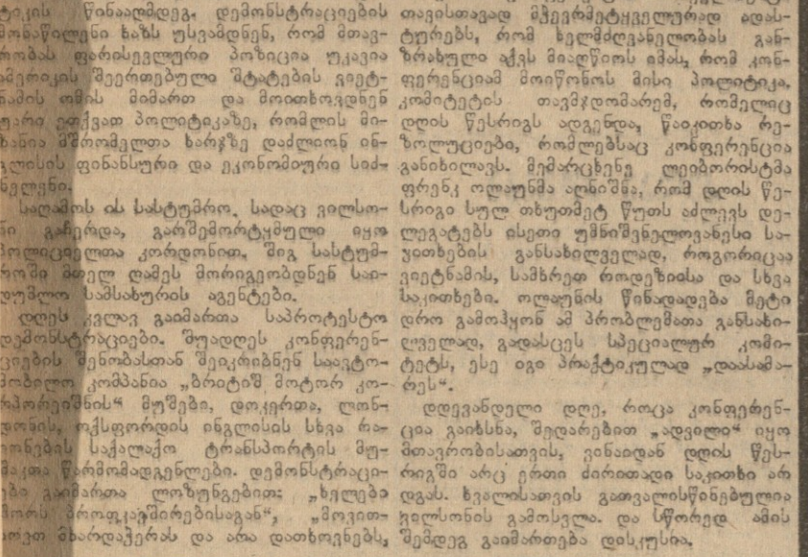 ტიკის წინააღმდეგ. დემონსტრაციების
მონაწილენი ხაზს უსვამდნენ, რომ მთავ-
რობას ფარისევლური პოზიცია უკავია
ამერიკის შეერთებული შტატების ვიეტ-
ნამის ომის მიმართ და მოითხოვდნენ
უარი ეთქვათ პოლიტიკაზე, რომლის მი-
ზანია მშრომელთა ხარჯზე დაძლიონ ინ-
გლისის ფინანსური და ეკონომიური სიძ-
ნელენი.
საღამოს ის სასტუმრო, სადაც ვილსო-
ნი გაჩერდა, გარშემორტყმული იყო
პოლიციელთა კორდონით. შიგ სასტუმ-
როში მთელ ღამეს მორიგეობდნენ საი-
დუმლო სამსახურის აგენტები.
დღეს კვლავ გაიმართა საპროტესტო
დემონსტრაციები. შუადღეს კონფერენ-
ციების შენობასთან შეიკრიბნენ საავტო-
მობილო კომპანია „ბრიტიშ მოტორ კო-
რპორეიშნის“ მუშები, დოკერთა, ლონ-
დონის, ოქსფორდის ინგლისის სხვა რა-
იონების საქალაქო ტრანსპორტის მუ-
შაკთა წარმომადგენლები. დემონსტრაცი-
ები გაიმართა ლოზუნგებით: „ხელები
შორს პროფკავშირებისაგან“, „მოვით-
ხოვთ მხარდაჭერას და არა დათხოვნებს,
თავისთავად მჭევრმეტყველურად ადას-
ტურებს, რომ ხელმძღვანელობას გან-
ზრახული აქვს მიაღწიოს იმას, რომ კონ-
ფერენციამ მოიწონოს მისი პოლიტიკა.
კომიტეტის თავმჯდომარემ, რომელიც
დღის წესრიგს ადგენდა, წაიკითხა რე-
ზოლუციები, რომლებსაც კონფერენცია
განიხილავს. მემარცხენე ლეიბორისტმა
ფრენკ ოლაუნმა აღნიშნა, რომ დღის წე-
სრიგი სულ თხუთმეტ წუთს აძლევს დე-
ლეგატებს ისეთი უმნიშვნელოვანესი სა-
კითხების განსახილველად, როგორიცაა
ვიეტნამის, სამხრეთ როდეზიისა და სხვა
საკითხები. ოლაუნის წინადადება მეტი
დრო გამოჰყონ ამ პრობლემათა განსახი-
ლველად, გადასცეს სპეციალურ კომი-
ტეტს, ესე იგი პრაქტიკულად „დაასამა-
რეს“.
დღევანდელი დღე, როცა კონფერენ-
ცია გაიხსნა, შედარებით „ადვილი“ იყო
მთავრობისათვის, ვინაიდან დღის წეს-
რიგში არც ერთი ძირითადი საკითხი არ
დგას. ხვალისათვის გათვალისწინებულია
ვილსონის გამოსვლა. და სწორედ ამის
შემდეგ გაიმართება დისკუსია.